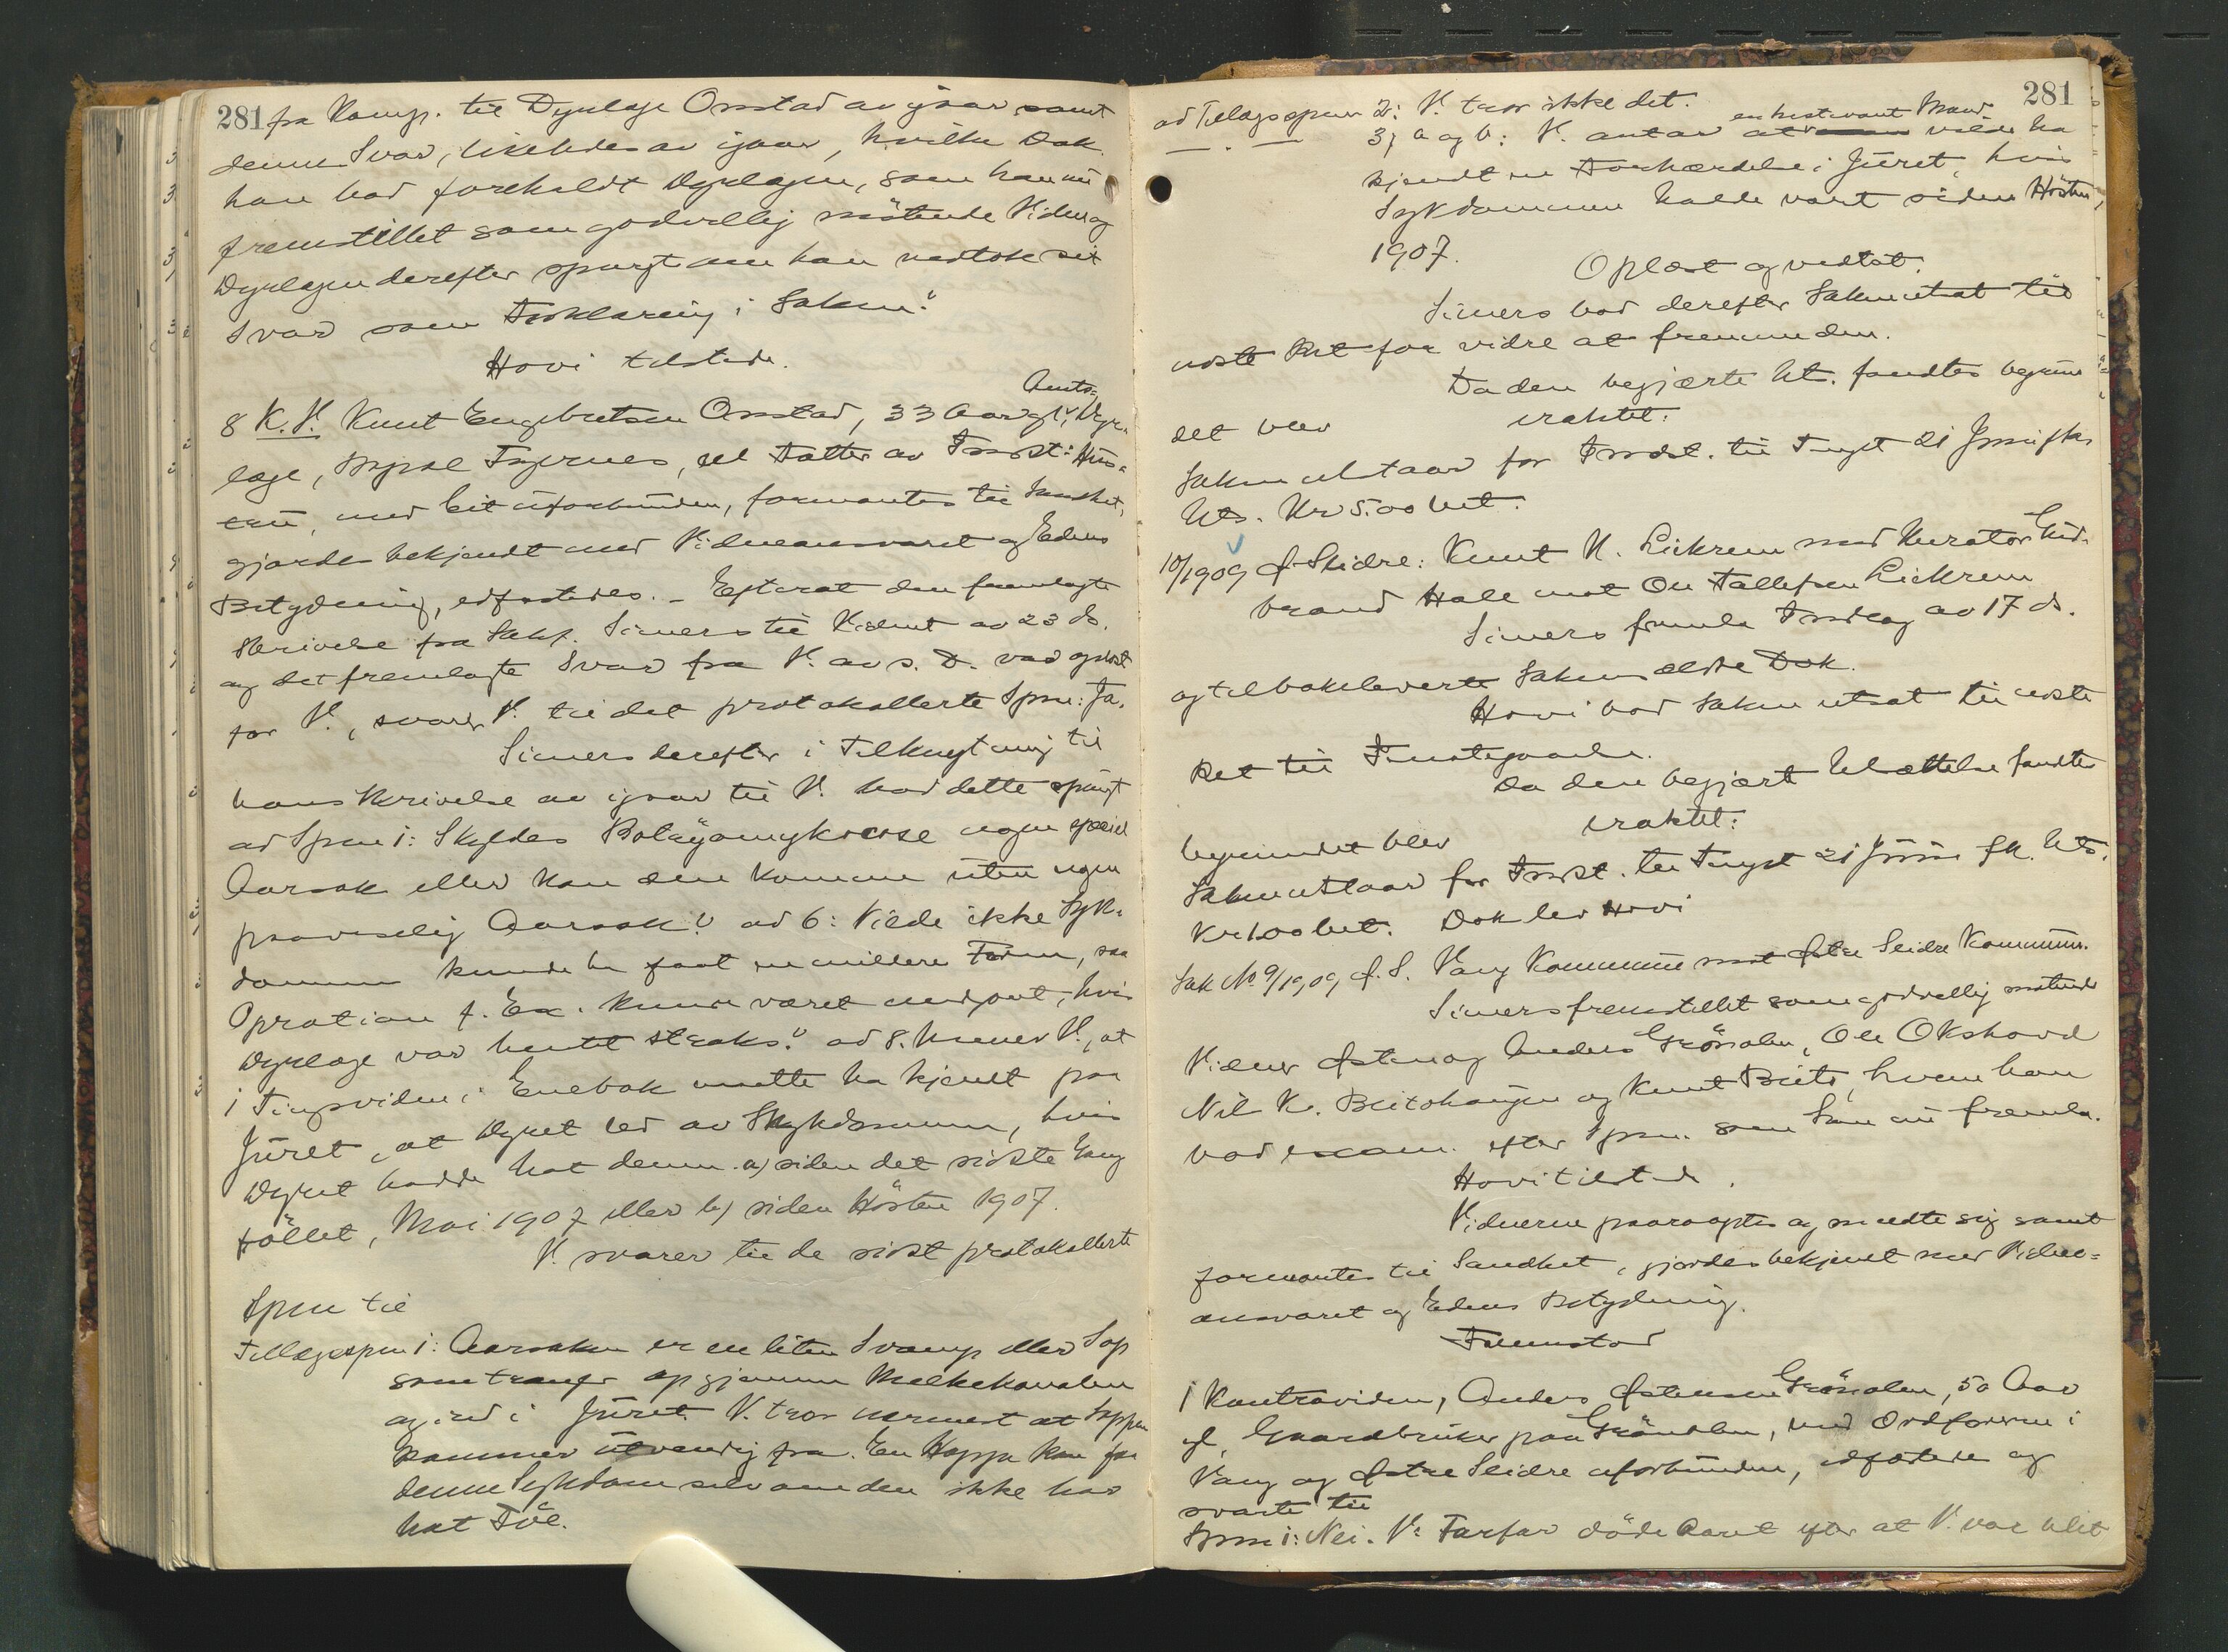 281 fra Kamp. til Dyrlæge Onstad av igaar samt
dennes Svar, likeledes av igaar, hvilke Dok.
han bad foreholdt Dyrlægen, som han nu
fremstillet som godvillig møtende Vidne og
Dyrlægen derefter spurgt om han vedtok sit
Svar som Forklaring i Saken."
Hovi tilstede.
8 K. V. Knut Engebretsen Onstad, 33 Aar gl., Amts-Dyr-
læge, Bopæl Fagernes, el Fatter av Indst:
med Cit. uforbunden, formantes til Sandhet,
gjordes bekjendt med Vidneansvaret og Edens
Betydning, edfæstedes. - Efterat den fremlagte
Skrivelse fra Sakf. Simers til Vidnet av 23 ds.
og det fremlagte Svar fra V. av s. D. var oplæst
for V., svarer V. til det protokollerte Spm: Ja.
Simers derefter i Tilknytning til
hans Skrivelse av igaar til V. bad dette spurgt
ad Spm 1: Skyldes Botryomykose nogen speciel
Aarsak eller kan den komme uten nogen
paaviselig Aarsak? ad 6: Vilde ikke Syk-
dommen kunde ha faat en mildere Form, saa
Opration f. Ex. kunde været undgaat, hvis
Dyrlæge var hentet straks? ad 8. Mener V., at
1 Tingsvidne i Enebok maatte ha kjendt paa
Jüret, at Dyret led av Sykdommen, hvis
Dyret hadde hat denne a) siden det sidste Gang
føllet, Mai 1907 eller b) siden Høsten 1907.
V. svarer til de sidst protokollerte
Spm til
Tillægsspm 1: Aarsaken er en liten Svamp eller Sop
som trænger op gjennem Melkekanalen
og ind i Jüret. V. tror nærmest at Soppen
kommer utvendig fra. En Hoppe kan faa
denne Sykdom selv om den ikke har
hat Føl.
281
ad Tillægsspm 2: V. tror ikke det.
3, a og b: V. antar at en hestevant Mand vilde ha
kjendt en Forhærdelse i Jüret, hvis
Sykdommen hadde vart siden Høsten
1907.
Oplæst og vedtat.
Simers bad derefter Saken utsat til
næste Ret for vidre at fremme den.
Da den begjærte Uts. fandtes begrun
det blev eraktet:
Saken utstaar for Indst. til Tingst 21 Juni f k.
Uts. Kr 5.00 bet.
10/1909 Ø-Slidre: Knut K. Lickrem med Kurator Gud-
brand Hale mot Ole Tollefsen Lickrem
Simers fremla Indlæg av 17 ds.
og tilbakeleverte Sakens ældre Dok.
Hovi bad Saken utsat til næste
Ret til Imøtegaaelse.
Da den begjært Utsættelse fandtes
begrundet blev eraktet:
Saken utstaar for Indst. til Tingst 21 Juni f k. Uts.
Kr 1.00 bet. Dok lev Hovi
Sak No 9/1909, Ø. S. Vang Kommune mot Østre Slidre Kommune.
Simers fremstillet som godvillig møtende
Vidner Østen og Anders Grönolen, Ole Okshovd
Nils K. Beitohaugen og Knut Beito, hvem han
bad exam. efter Spm. som han nu fremla.
Hovi tilstede.
Vidnerne paaroptes og meldte sig samt
formantes til Sandhet, gjordes bekjendt med Vidne-
ansvaret og Edens Betydning.
Fremstod
1 Kontravidne, Anders Østensen Grönolen, 50 Aar
gl, Gaardbruker paa Grönolen, med Ordførerne i
Vang og Østre Slidre uforbunden, edfæstedes og
svarte til
Spm 1: Nei. V's Farfar döde Aaret efter at V. var blit